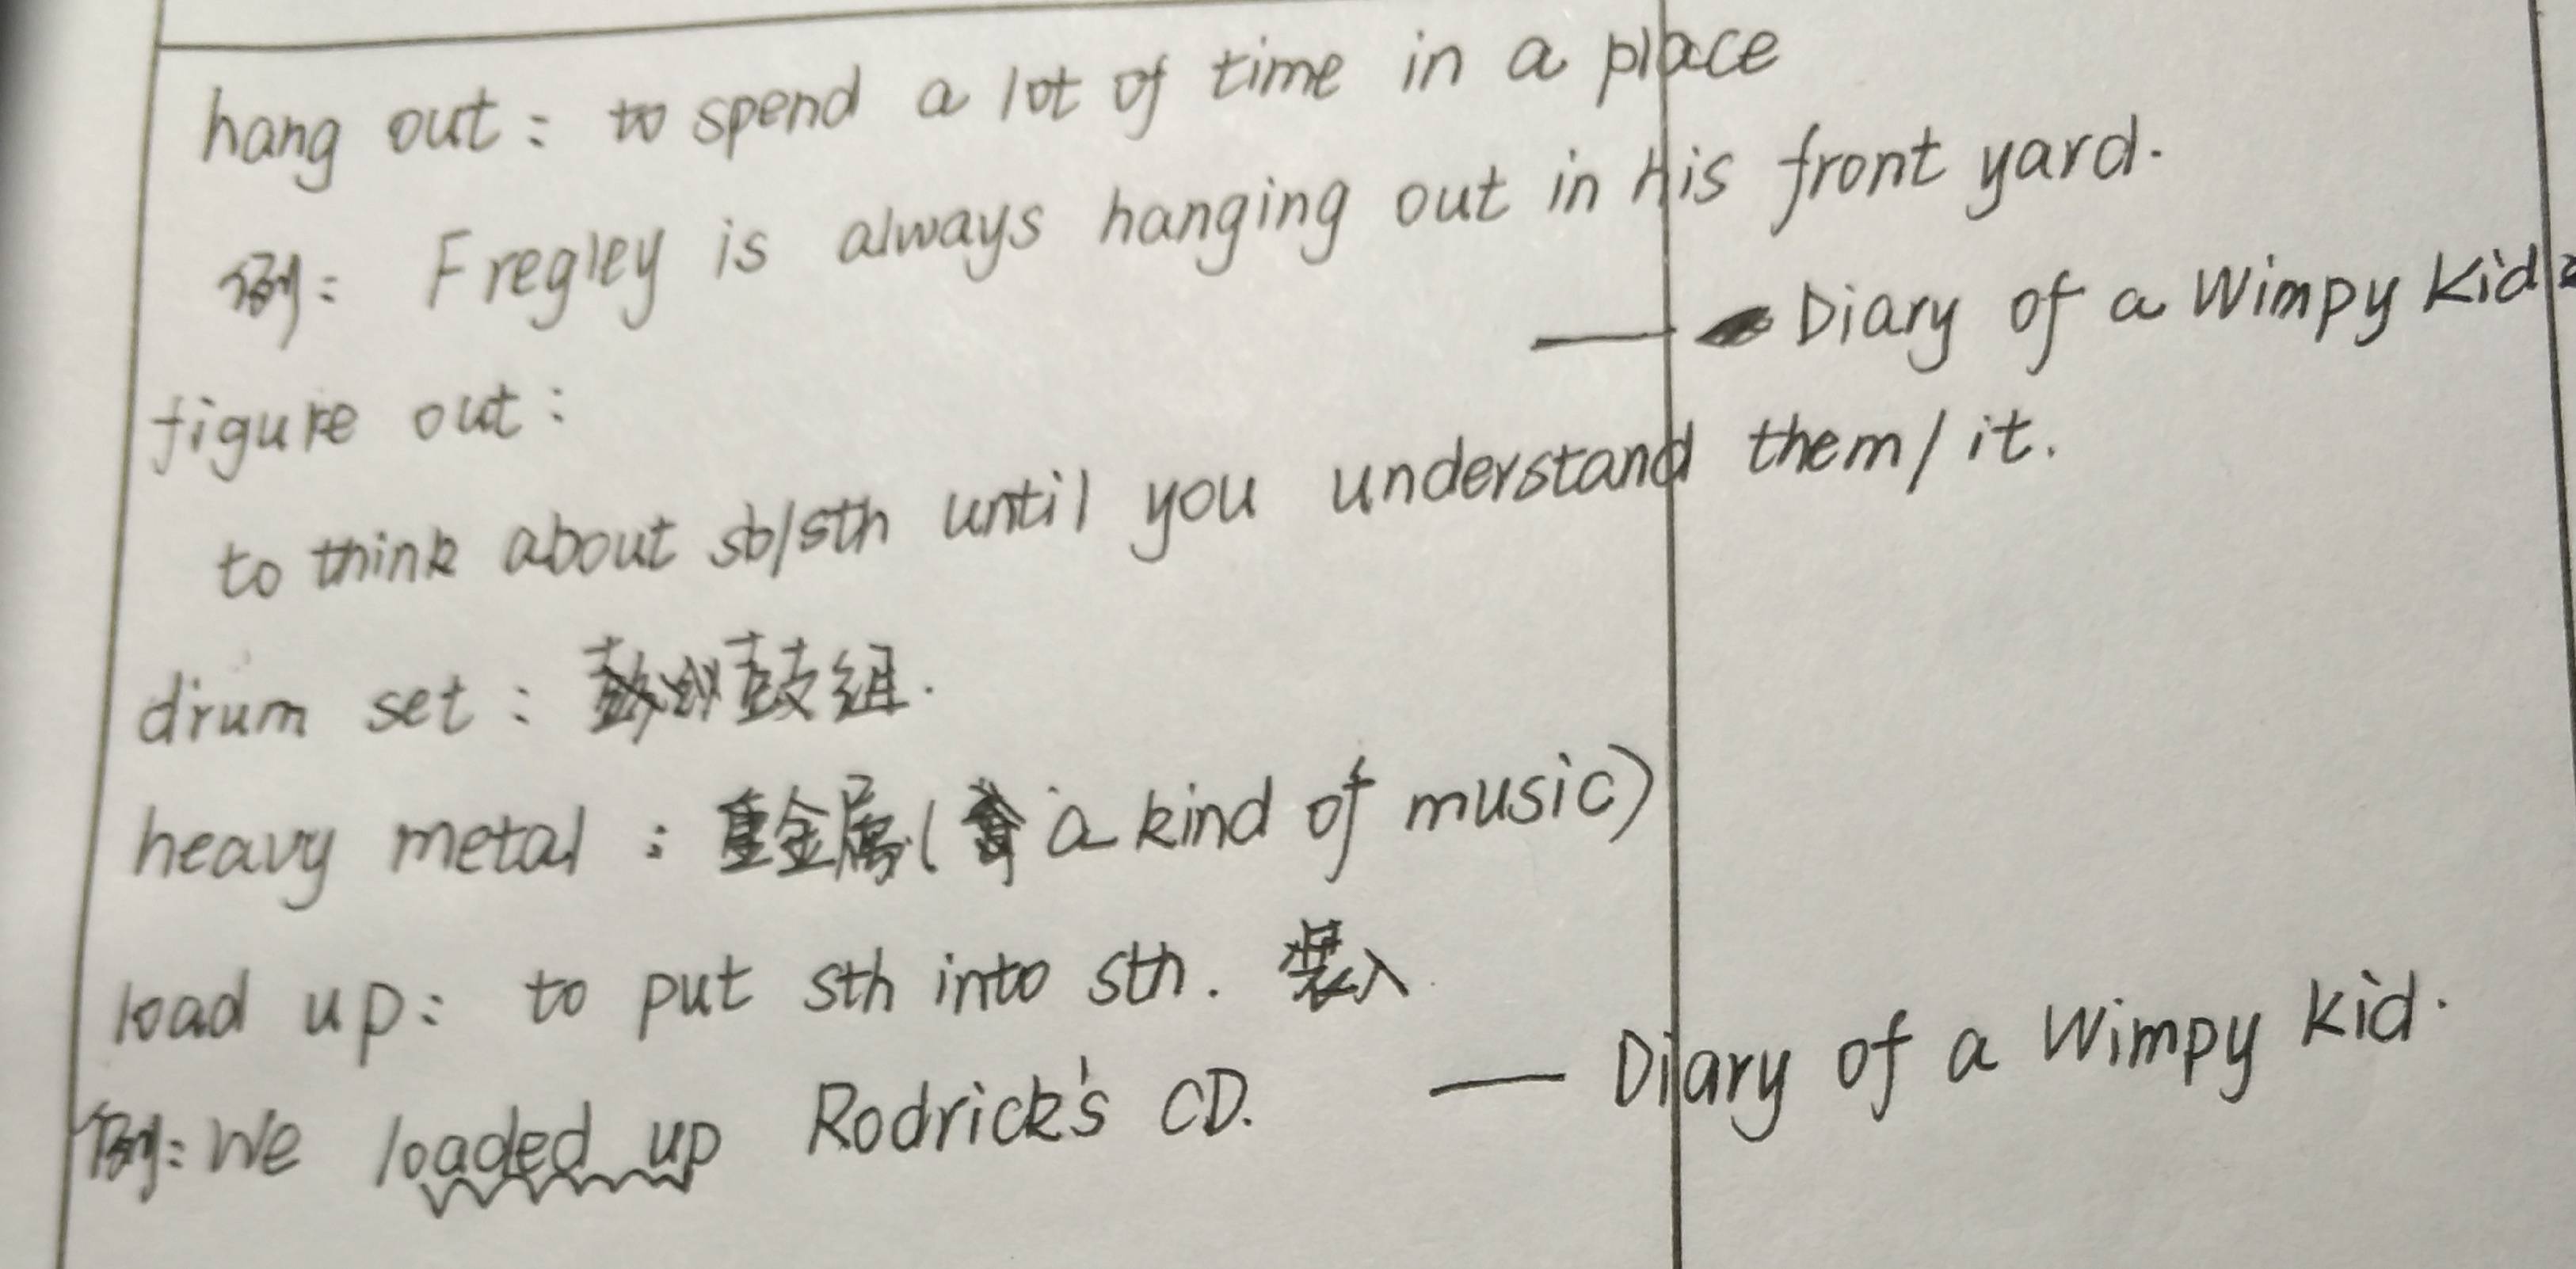 hang out: to spend a lot of time in a place
例: Fregley is always hanging out in his front yard.
— Diary of a Wimpy Kid
figure out:
to think about sb/sth until you understand them/it.
drum set: 鼓组.
heavy metal: 重金属(a kind of music)
load up: to put sth into sth. 装入.
例: We loaded up Rodrick's CD. — Diary of a Wimpy Kid.